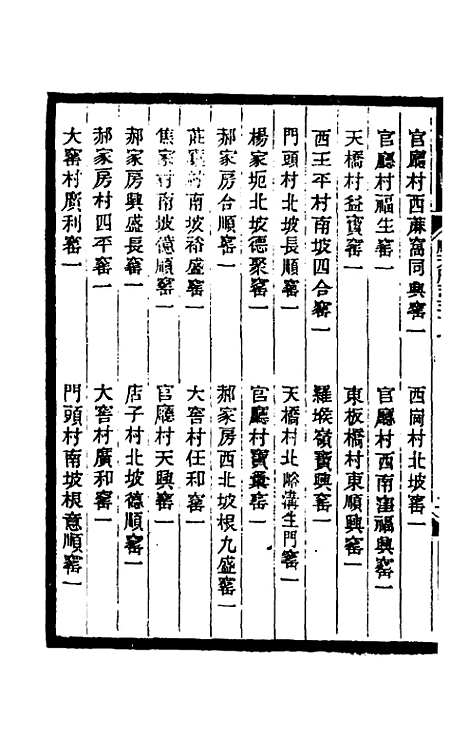 官廳村西蔴窩同興窰一
西崗村北坡窰一
官廳村福生窰一
官廳村西南窪福興窰一
天橋村益寶窰一
東板橋村東順興窰一
西王平村南坡四合窰一
羅堠嶺寶興窰一
門頭村北坡長順窰一
天橋村北溝生門窰一
楊家坨北坡德聚窰一
官廳村寶窰一
郝家房合順窰一
郝家房西北坡根九盛窰一
村南坡裕盛窰一
大窖村任和窰一
焦家村南坡德順窰一
官廳村天興窰一
郝家房興盛長窰一
店子村北坡德順窰一
郝家房村四平窰一
大窖村廣和窰一
大窰村廣利窰一
門頭村南坡根意順窰一